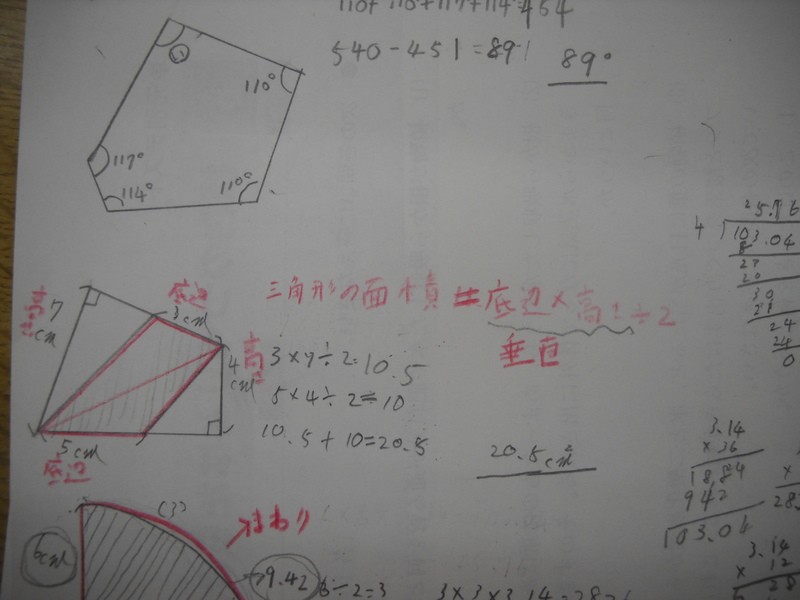 540-451=89
89°
110°
117°
110°
114°
25.76
4 103.04
8
23
20
30
28
24
24
0
三角形の面積=底辺×高さ÷2
垂直
底辺
3cm
高さ
7
cm
高さ
4
cm
5cm
底辺
3×7÷2=10.5
5×4÷2=10
10.5+10=20.5
20.5cm²
3.14
×36
18.84
942
103.04
(3)
まわり
6cm
9.42
6÷2=3
3.14
×12